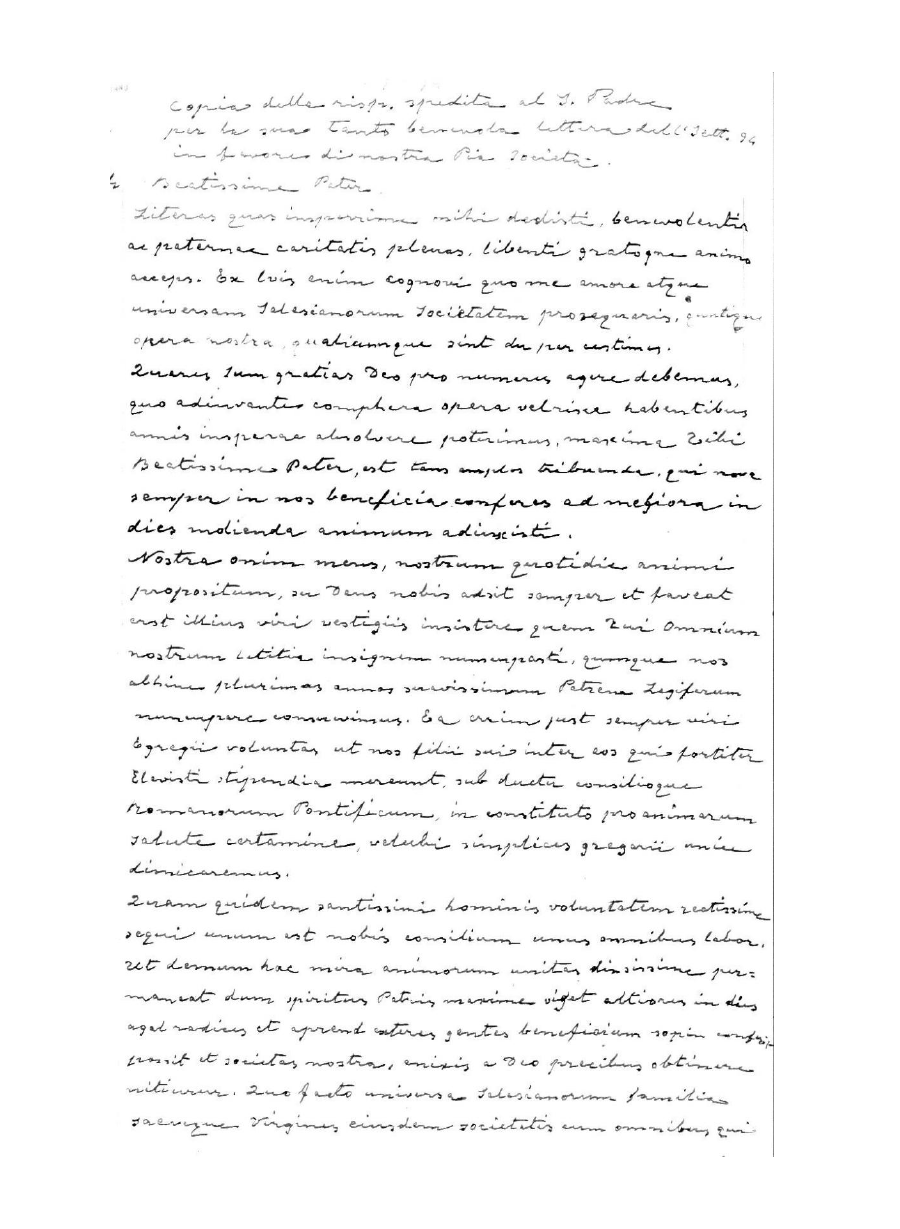 Copia della risp. spedita al S. Padre
per la sua tanto benevola lettera dell' Sett. 94
in favore di nostra Pia Società.
Beatissime Pater.
Literas quas insperrime mihi dedisti, benevolentia
ac paternae caritatis plenas, libenti gratoque animo
acceps. Ex Ivis enim cognovi quo me amore atque
universam Salesianorum Societatem prosequaris,
opera nostra, qualiacumque sint du per
gratias Deo pro numeris agere debemus,
quo adiuvante opera habentibus
annis absolvere poterimus, maxima Tibi
Beatissime Pater, est tribuenda, qui nova
semper in nos beneficia conferes ad meliora in
dies animum
Nostra enim mens, nostrum quotidie animi
propositum, Deus nobis adsit semper et faveat
est illius viri vestigiis insistere quem Tui Omnium
nostrum letitia insignem quemque nos
abhinc plurimas annos suavissimum Patrem Legiferum
consuevimus. Ea enim just semper viri
Egregii voluntas ut nos filii sui inter eos qui fortiter
stipendia mereunt, sub ductu consilioque
Romanorum Pontificum, in constituto pro animarum
salute certamine, velubi simplices gregarii
dimicaremus.
Quam quidem santissimi hominis voluntatem rectissime
sequi unum est nobis consilium unus omnibus labor.
demum hac mira animorum unitas per=
maneat dum spiritus Patris maxime viget altiores in dies
agat radices et gentes beneficium
possit et societas nostra, enixis a Deo precibus obtinere
nititur. Quo facto universa Salesianorum familia
sacreque Virgines eiusdem societatis cum omnibus qui